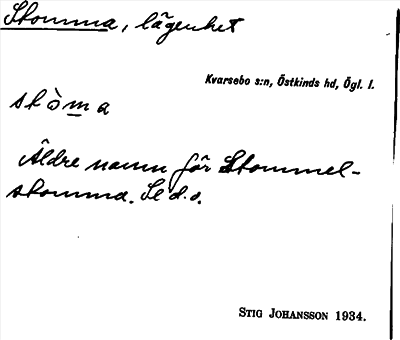 Stomma, lägenhet
Kvarsebo s:n, Östkinds hd, Ögl. l.
stòma
Äldre namn för Stommel-
stomma. Se d.o.
STIG JOHANSSON 1934.